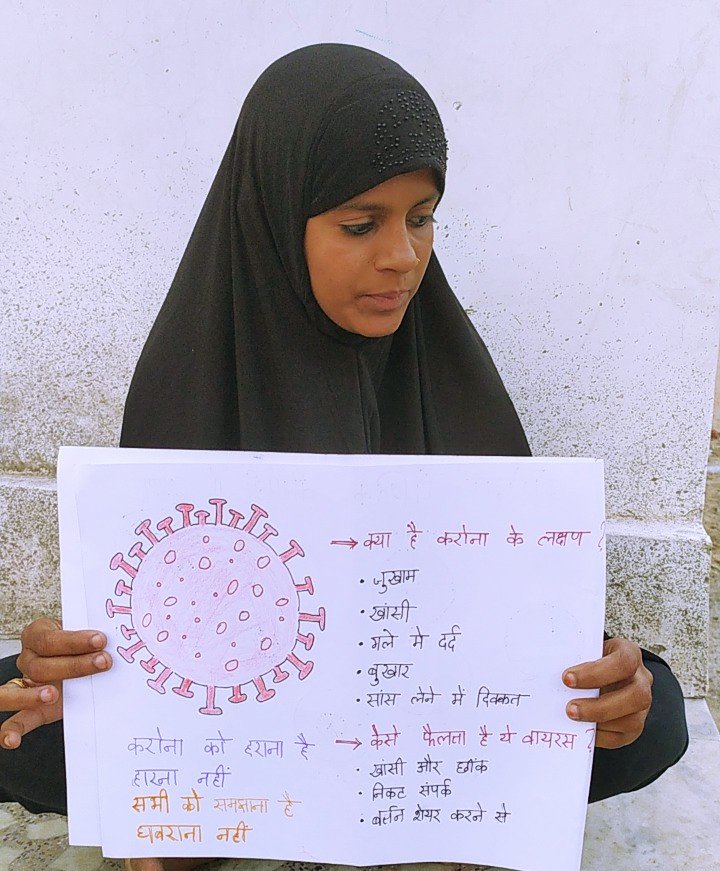 → क्या है करोना के लक्षण ?
• जुखाम
• खांसी
• गले मे दर्द
• बुखार
• सांस लेने में दिक्कत
→ केसे फैलता है ये वायरस ?
• खांसी और छींक
• निकट संपर्क
• बर्तन शेयर करने से
करोना को हराना है
हारना नहीं
सभी को समझाना है
घबराना नहीं